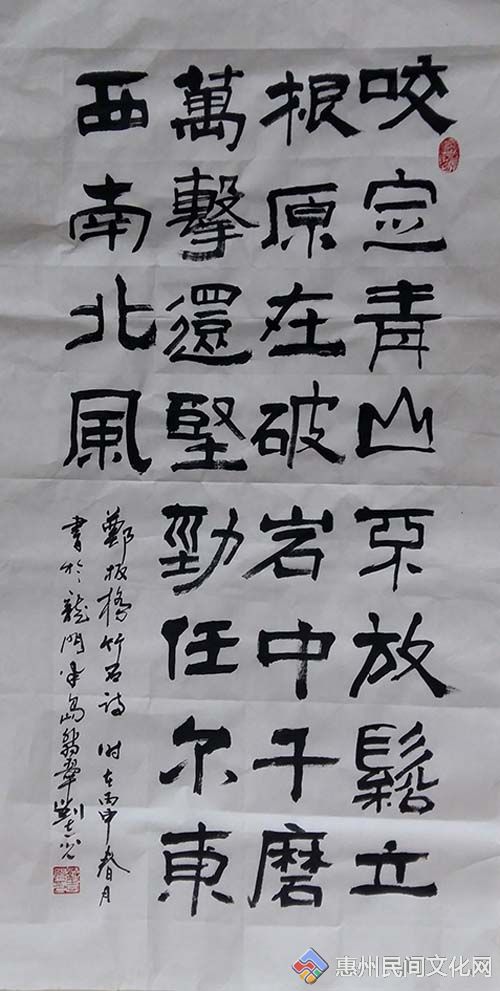 咬定青山不放鬆立
根原在破岩中千磨
萬擊還堅勁任尔東
西南北風
鄭板橋竹石詩 时在丙申春月
書於龍門半島翡翠劉
惠州民间文化网